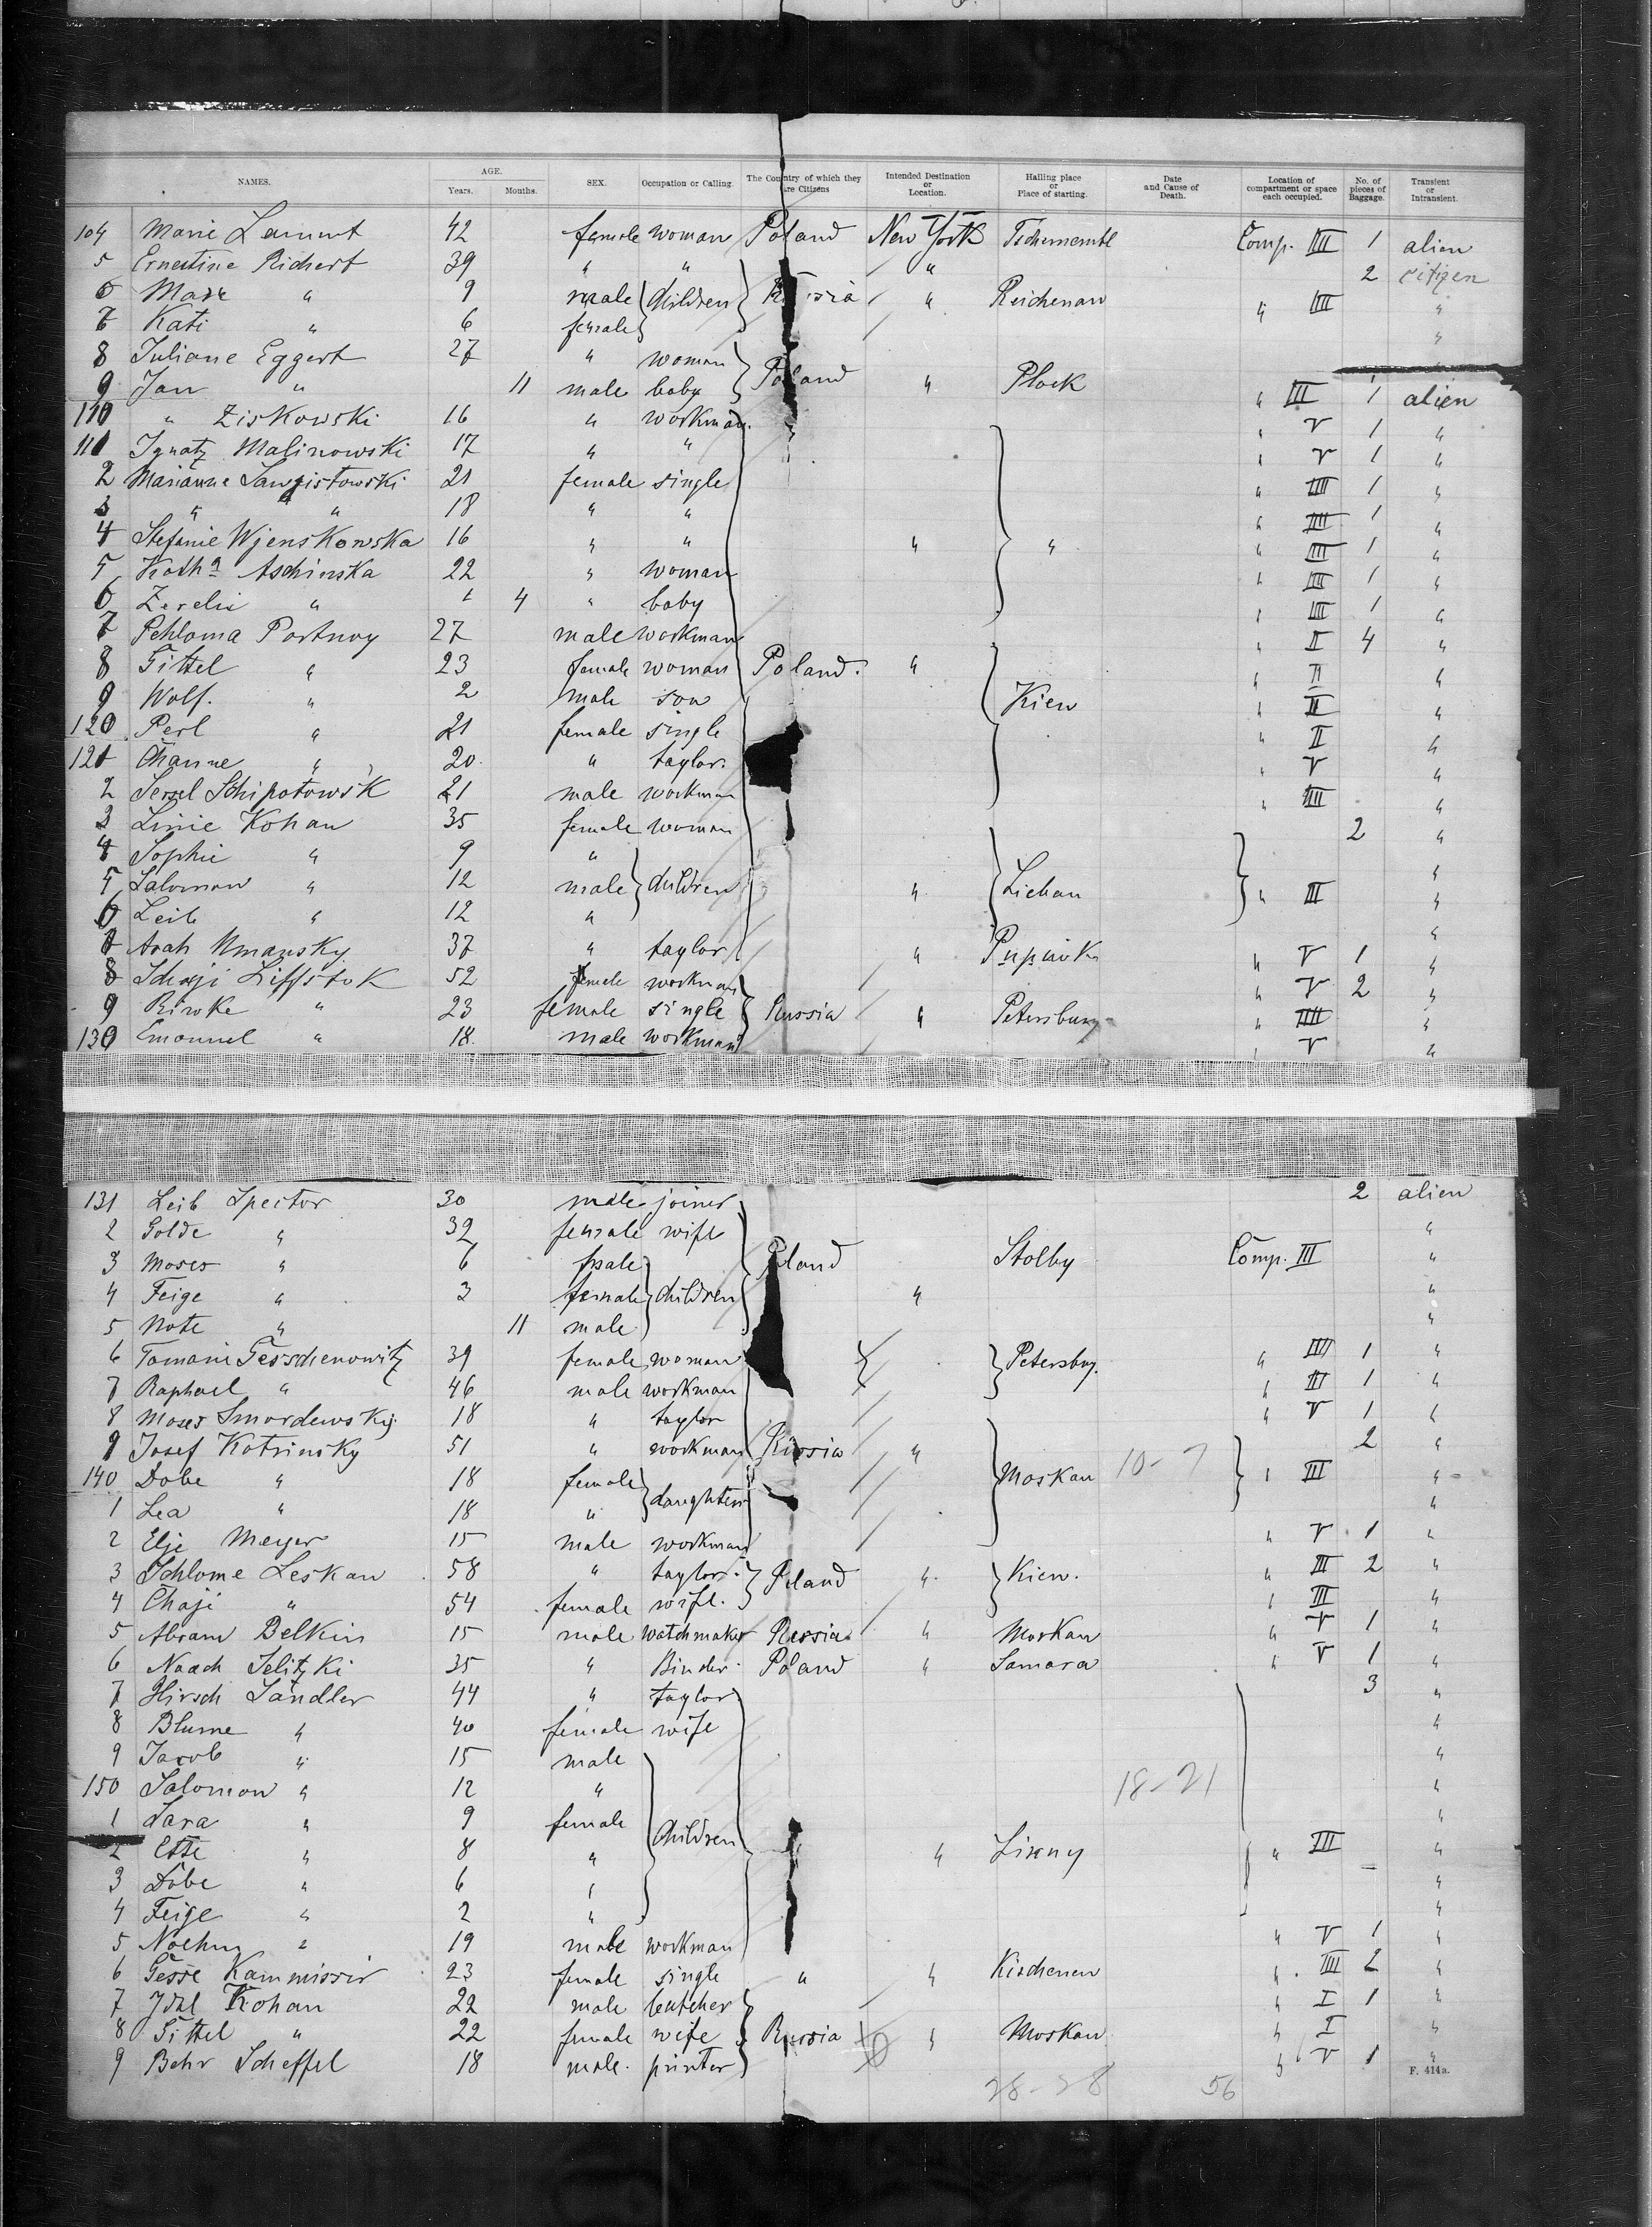 NAMES. AGE. Years. Months. SEX. Occupation or Calling. The Country of which they are Citizens Intended Destination or Location. Hailing place or Place of starting. Date and Cause of Death. Location of compartment or space each occupied. No. of pieces of Baggage. Transient or Intransient.
104 Marie Lammt 42 female woman Poland New York Comp. III 1 alien
5 Ernestine Richert 39 " " " 2 citizen
6 Marx " 9 male children Russia " Reichenau " III "
7 Kati " 6 female "
8 Juliane Eggert 27 " woman
9 Jan " 11 male baby Poland " Plock " III 1 alien
110 " Ziskowski 16 " workman " V 1 "
111 Ignatz Malinowski 17 " " " V 1 "
2 Marianne 21 female single " IIII 1 "
3 " " 18 " " " IIII 1 "
4 Stefanie Wjenskowska 16 " " " " " III 1 "
5 Kath a Aschinska 22 " woman " III 1 "
6 " 4 " baby " III 1 "
7 Pehloma Portnoy 27 male workman " II 4 "
8 Gittel " 23 female woman Poland. " " II "
9 Wolf. " 2 male son Kiew " II "
120 Perl " 21 female single " II "
121 Channe " 20 " taylor. " V "
2 Schipotowsk 21 male workman " IIII "
3 Linie Kohan 35 female woman 2 "
4 Sophie " 9 " "
5 Salomon " 12 male children " Liebau " III "
6 Leib " 12 " "
7 Arah Umansky 37 " taylor " " V 1 "
8 Liffstok 52 female workman " V 2 "
9 Riwke " 23 female single Russia " Petersburg " IIII "
130 Emanuel " 18 male workman " V "
131 Leib Spector 30 male joiner 2 alien
2 Golde " 32 female wife "
3 Moses " 6 male Poland Stolby Comp. III "
4 Feige " 3 female children " "
5 Note " 11 male "
6 Tomani 39 female woman Petersbug. " IIII 1 "
7 Raphael " 46 male workman " III 1 "
8 Moses Smordewsky 18 " taylor " V 1 "
9 Josef Kotrinsky 51 " workman Russia " 2 "
140 Dobe " 18 female daughters Moskau 10-7 " III "
1 Lea " 18 " "
2 Elje Meyer 15 male workman " V 1 "
3 Schlome Leskau 58 " taylor. Poland " Kiew. " III 2 "
4 Chaji " 54 female wife. " III "
5 Abram Belkin 15 male watchmaker Russia " Moskau " V 1 "
6 Noach Selitzki 35 " Binder. Poland " Samara " V 1 "
7 Hirsch Sandler 44 " taylor 3 "
8 Blume " 40 female wife "
9 Jacob " 15 male "
150 Salomon " 12 " 18-21 "
1 Sara " 9 female "
2 Ette " 8 " children " " " III "
3 Dobe " 6 " "
4 Feige " 2 " "
5 Nochm " 19 male workman " V 1 "
6 Gesse Kammissir 23 female single " " Kischenew " III 2 "
7 Kohan 22 male butcher " I 1 "
8 Gittel " 22 female wife Russia " Moskau " I "
9 Behr Scheffel 18 male. printer " V 1 "
28-28 56 F. 414a.